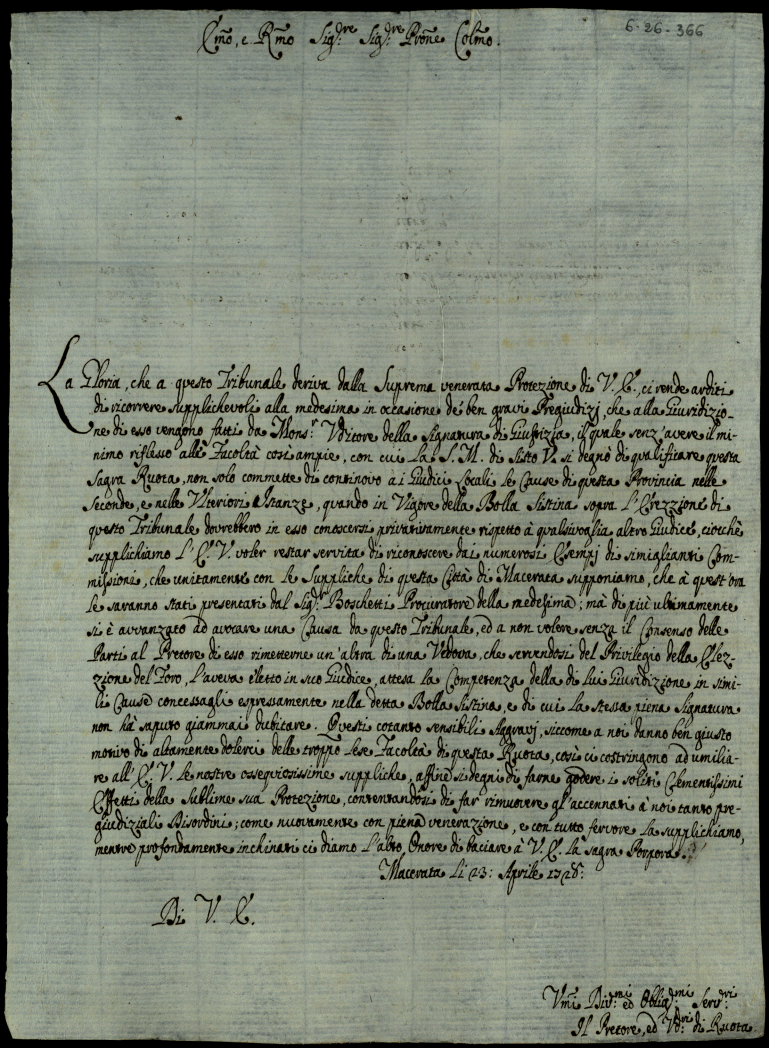 6-26-366
Em̃o, e Rm̃o Sig:re Sig:re Prõne Colm̃o.
La Gloria, che a questo Tribunale deriva dalla Suprema venerata Protezione di V. E., ci rende arditi
di ricorrere supplichevoli alla medesima in occasione de' ben gravi Pregiudizj, che alla Giuridizio-
ne di esso vengono fatti da Mons:r Vditore della Signatura di Giustizia, il quale senz'avere il mi-
nimo riflesso alle Facoltà così ampie, con cui la S. M. di Sisto V. si degnò di qualificare questa
Sagra Ruota, non solo commette di continovo a i Giudici Locali le Cause di questa Provincia nelle
seconde, e nelle Vlteriori Istanze, quando in Vigore della Bolla Sistina sopra l'Erezzione di
questo Tribunale dovrebbero in esso conoscersi privativamente rispetto à qualsivoglia altro Giudice, ciocchè
supplichiamo l'E. V. voler restar servita di riconoscere dai numerosi Esempj di simiglianti Com-
missioni, che unitamente con le Suppliche di questa Città di Macerata supponiamo, che à quest'ora
le saranno stati presentati dal Sig:r Boschetti Procuratore della medesima; mà di più ultimamente
si è avvanzato ad avocare una Causa da questo Tribunale, ed a non volere senza il Consenso delle
Parti al Pretore di esso rimetterne un'altra di una Vedova, che servendosi del Privilegio della Elez-
zione del Foro, l'aveva eletto in suo Giudice, attesa la Competenza della di lui Giuridizione in simi-
li Cause concessagli espressamente nella detta Bolla Sistina, e di cui la stessa piena Signatura
non hà saputo giammai dubitare. Questi cotanto sensibili Aggravj, siccome a noi danno ben giusto
motivo di altamente dolerci delle troppo lese Facoltà di questa Ruota, così ci costringono ad umilia-
re all'E. V. le nostre ossequiosissime suppliche, affine si degni di farne godere i soliti Clementissimi
Effetti della Sublime sua Protezione, contentandosi di far rimuovere gl'accennati à noi tanto pre-
giudiziali Disordini; come nuovamente con piena venerazione, e con tutto fervore la supplichiamo,
mentre profondamente inchinati ci diamo l'alto Onore di baciare à V. E. la sagra Porpora.
Macerata li 23: Aprile 1728:
Di V. E.
Vmi Div:mi ed Oblig:mi Serv:ri
Il Pretore, ed Vd:ri di Ruota